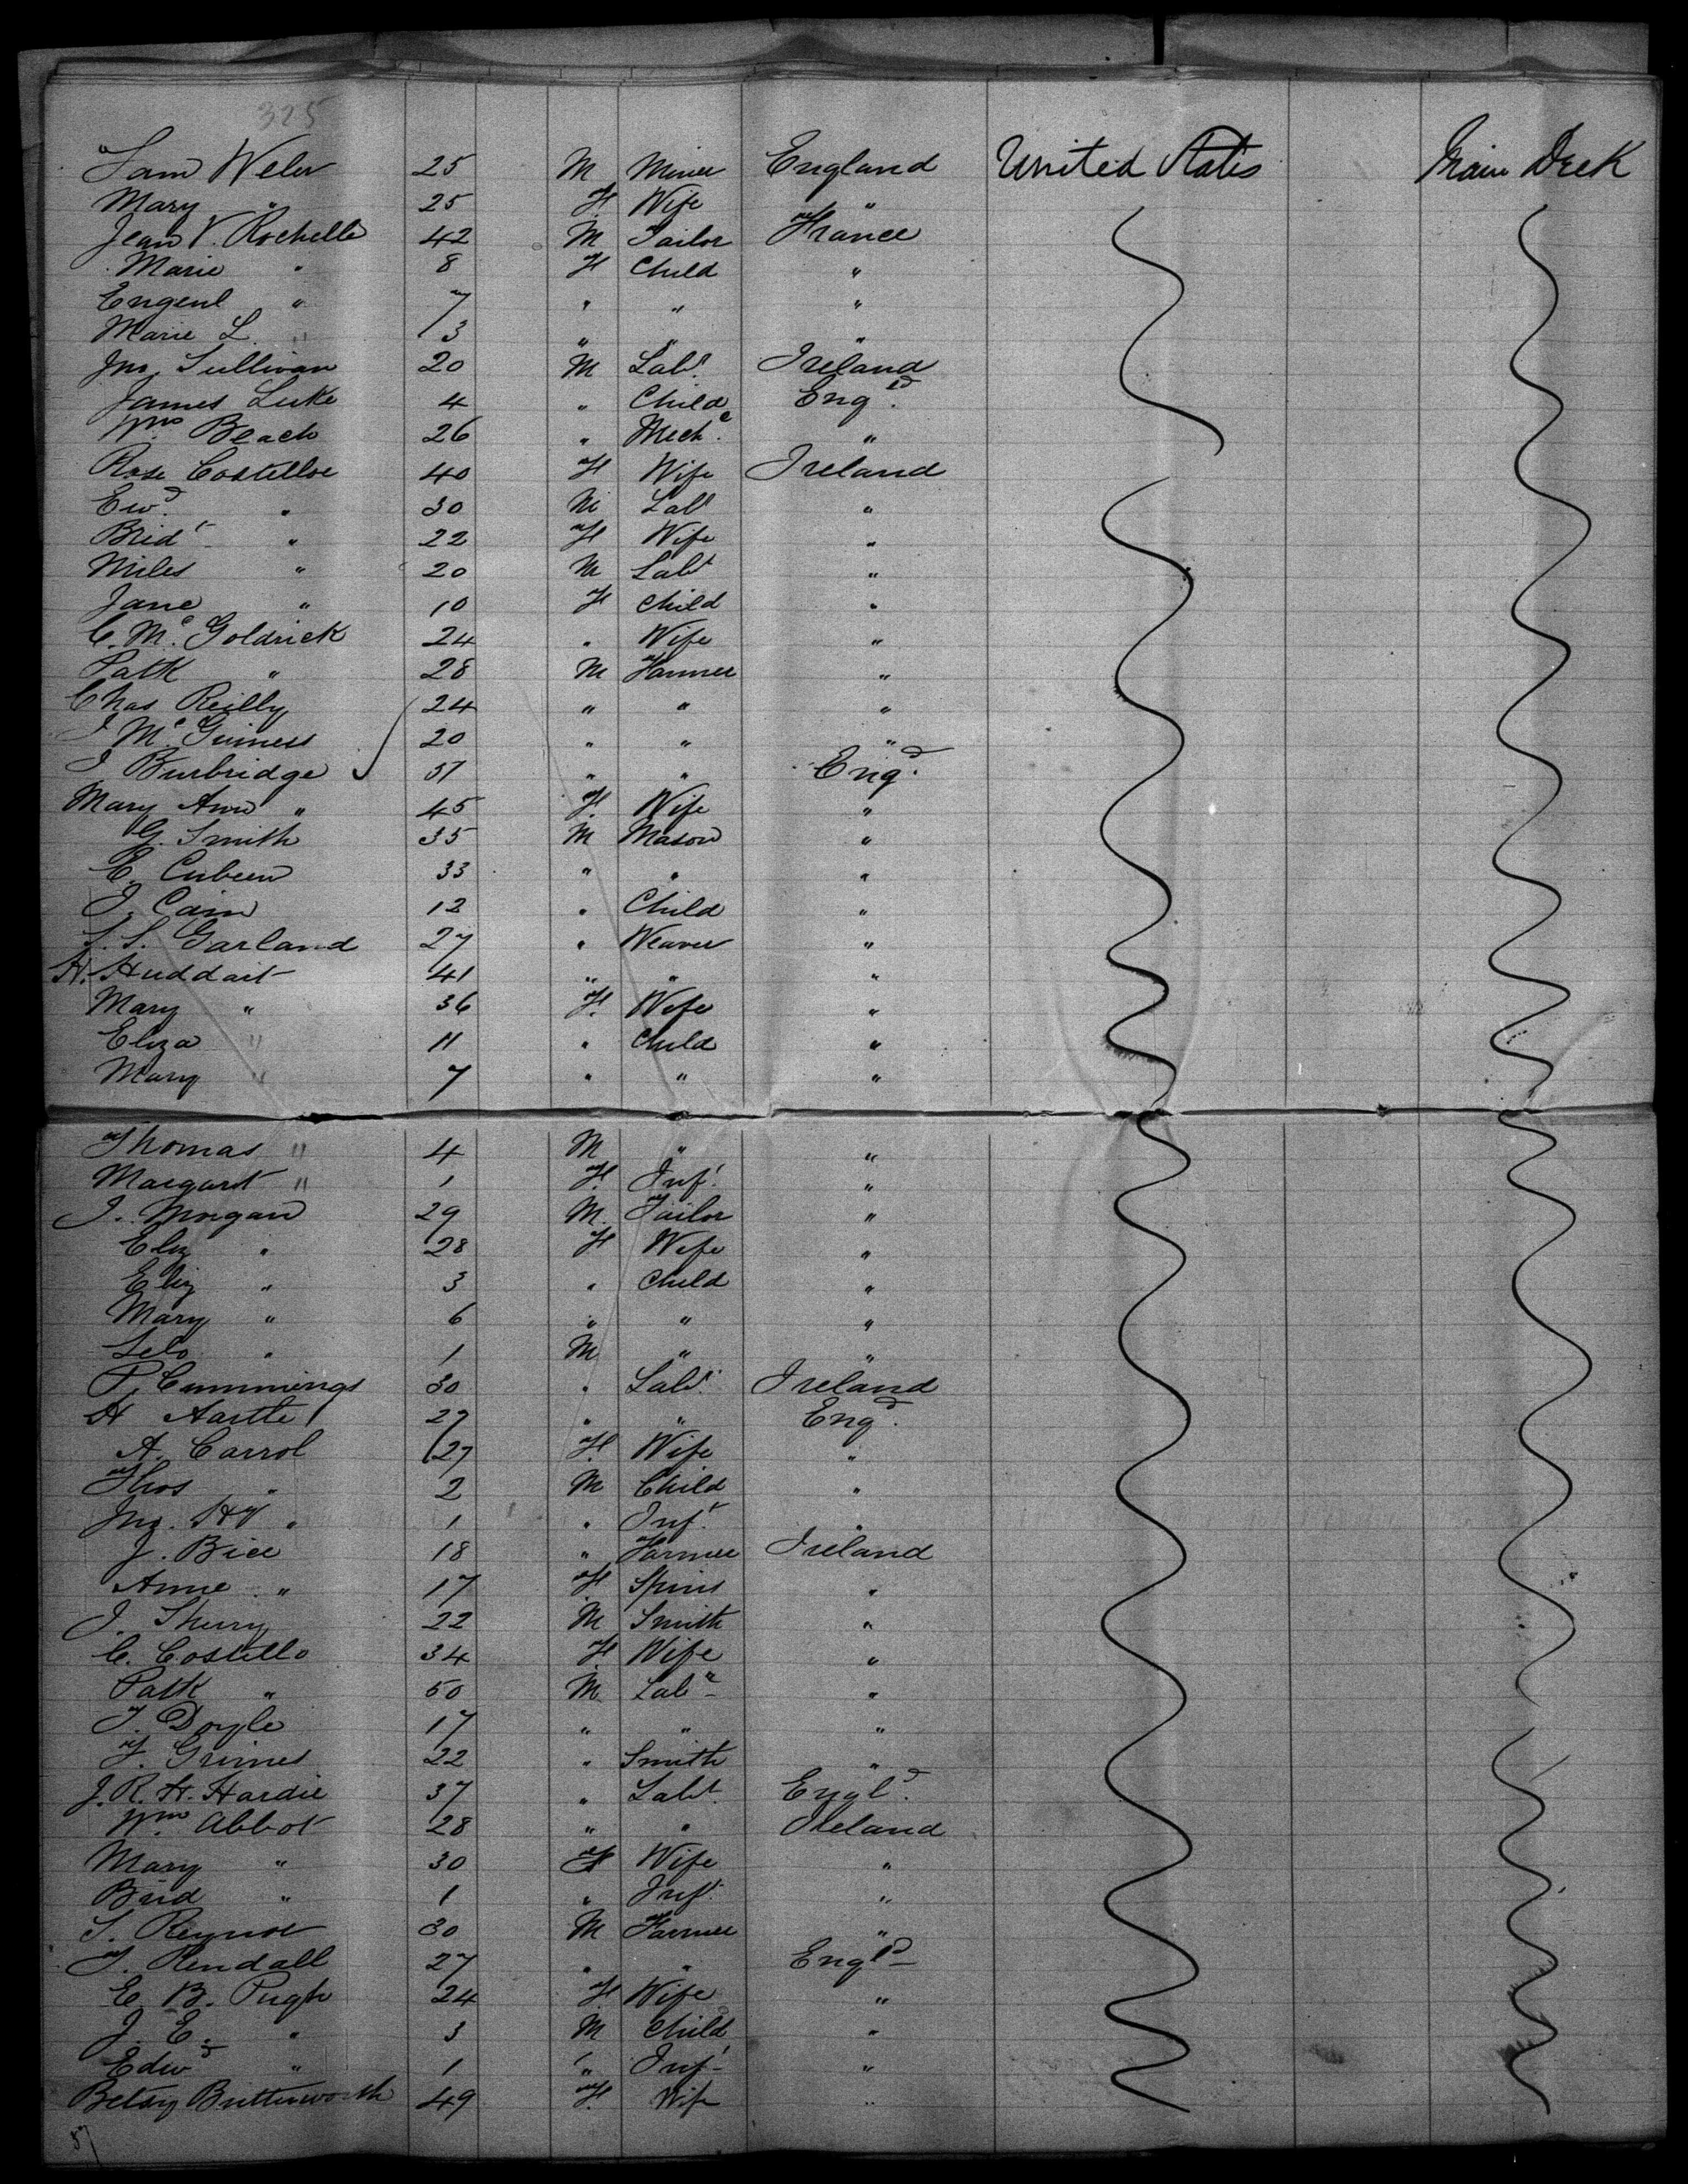 325
Sam Weler 25 M Miner England United States Main Deck
Mary " 25 F. Wife "
Jean V. Rochelle 42 M Tailor France
Marie " 8 F Child "
Engenl " 7 " " "
Marie L. " 3 " " "
Jno. Sullivan 20 M Labr. Ireland
James Luke 4 " Child Engd.
Wm. Beach 26 " Mechc. "
Rose Costelloe 40 F Wife Ireland
Ewd. " 30 M Labr "
Bridt " 22 F Wife "
Miles " 20 M Labr "
Jane " 10 F Child "
C. Mc. Goldrick 24 " Wife "
Patk " 28 M Farmer "
Chas Reilly 24 " " "
J Mc Guiness 20 " " "
J Burbridge 51 " " Engd.
Mary Ann " 45 F. Wife "
G. Smith 35 M Mason "
E. Cubeen 33 " " "
J. Cain 12 " Child "
S. S. Garland 27 " Weaver "
H. Huddart 41 " " "
Mary " 36 F. Wife "
Eliza " 11 " Child "
Mary " 7 " " "
Thomas " 4 M " "
Margaret " 1 F. Inft. "
J. Morgan 29 M. Tailor "
Eliz " 28 F Wife "
Eliz " 3 " Child "
Mary " 6 " " "
" 1 M " "
P. Cummings 30 " Labr. Ireland
H 27 " " Engd.
A. Carrol 27 F. Wife "
Thos " 2 M Child "
Jno. Hy " 1 " Inft. "
J. Bice 18 " Farmer Ireland
Anne " 17 F Spins "
J. Sherry 22 M Smith "
C. Costello 34 F. Wife "
Patk " 50 M Labr "
J. Doyle 17 " " "
T. Grimes 22 " Smith "
J. R. H. Hardie 37 " Labr. Engld.
Wm. Abbot 28 " " Ireland
Mary " 30 F Wife "
Brid " 1 " Inft. "
S. 30 M Farmer "
T. Kendall 27 " " Engld
E. B. Pugh 24 F Wife "
J. E. " 3 M Child "
Edwd " 1 " Inft "
Betsy Butterworth 49 F. Wife "
57